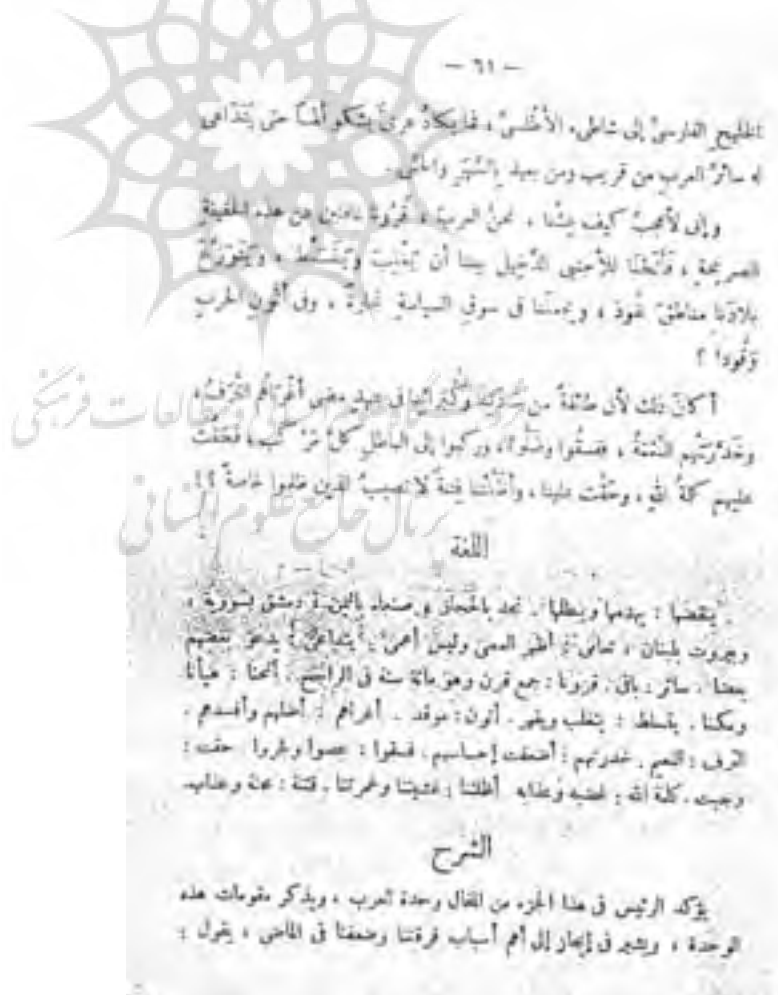 — ٦١ —
الخليج الفارسىّ إلى شاطىء الأطْلسىّ ، فما يكادُ عربىّ يشكو ألمـًا حتى يَتَدَاعى
له سائرُ العرب من قريب ومن بعيد بالسَّهَرِ والحمَّى .
وإنى لأعجبُ كيف عِشْنا ، نحنُ العربَ ، قُرُونًا غافلين عن هذه الحقيقةِ
الصريحةِ ، فَأَتَحْنَا للأجنبى الدَّخِيل بيننا أن يَتَغَلَّبَ ويَتَسَلَّطَ ، ويَتَوَزَّعَ
بلادَنا مناطقَ نفُوذ ، ويجعلَنا فى سوقِ السياسةِ تجارةً ، وفى أتُّونِ الحربِ
وَقُودا ؟
أكانَ ذلك لأن طائفةً من وكُبَرائها فى عهدٍ مضى أغْرَاهُم التَّرَفُ ،
وخَدَّرَتْهم النِّعْمَةُ ، ففسقُوا وضَلُّوا ، وركبوا إلى الباطل كلَّ مَرْكَب ، فَحَقَّتْ
عليهم كلمةُ اللهِ ، وحقَّت علينا ، وأظلَّتْنا فِتنةٌ لا تصيبنَّ الذين ظلموا خاصةً ؟ !
اللغة
ينقضها : يهدمها ويبطلها . نجد بالحجاز وصنعاء باليمن ، دمشق بسورية ،
وبيروت بلبنان ، تعامى : أظهر العمى وليس أعمى . يتداعى : يدعو بعضهم
بعضا . سائر : باقى . قرونا : جمع قرن وهو مائة سنة فى الراجح . أتحنا : هيأنا
ومكنا . يتسلط : يتغلب ويقهر . أتون : موقد . أغراهم : أضلهم وأفسدهم .
الترف : النعيم . خدرتهم : أضعفت إحساسهم . فسقوا : عصوا وفجروا . حقت :
وجبت . كلمة الله : غضبه وعذابه . أظلتنا : غشيتنا وغمرتنا . فتنة : محنة وعذاب .
الشرح
يؤكد الرئيس فى هذا الجزء من المقال وحدة العرب ، ويذكر مقومات هذه
الوحدة ، ويشير فى إيجاز إلى أهم أسباب فرقتنا وضعفنا فى الماضى ، يقول :
پرتال جامع علوم انسانی